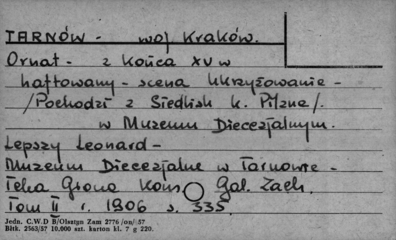 TARNÓW - woj Kraków.
Ornat - z końca XV w
haftowany - scena Ukrzyżowanie -
/Pochodzi z Siedlisk k. Pilzna/.
w Muzeum Diecezjalnym.
Lepszy Leonard -
Muzeum Diecezjalne w Tarnowie -
Teka Grona Kons. Gal. Zach.
Tom II r. 1906 s. 335.
Jedn. C.W.D B/Olsztyn Zam 2776 /on/:57
Bltk. 2563/57 10.000 szt. karton kl. 7 g 220.